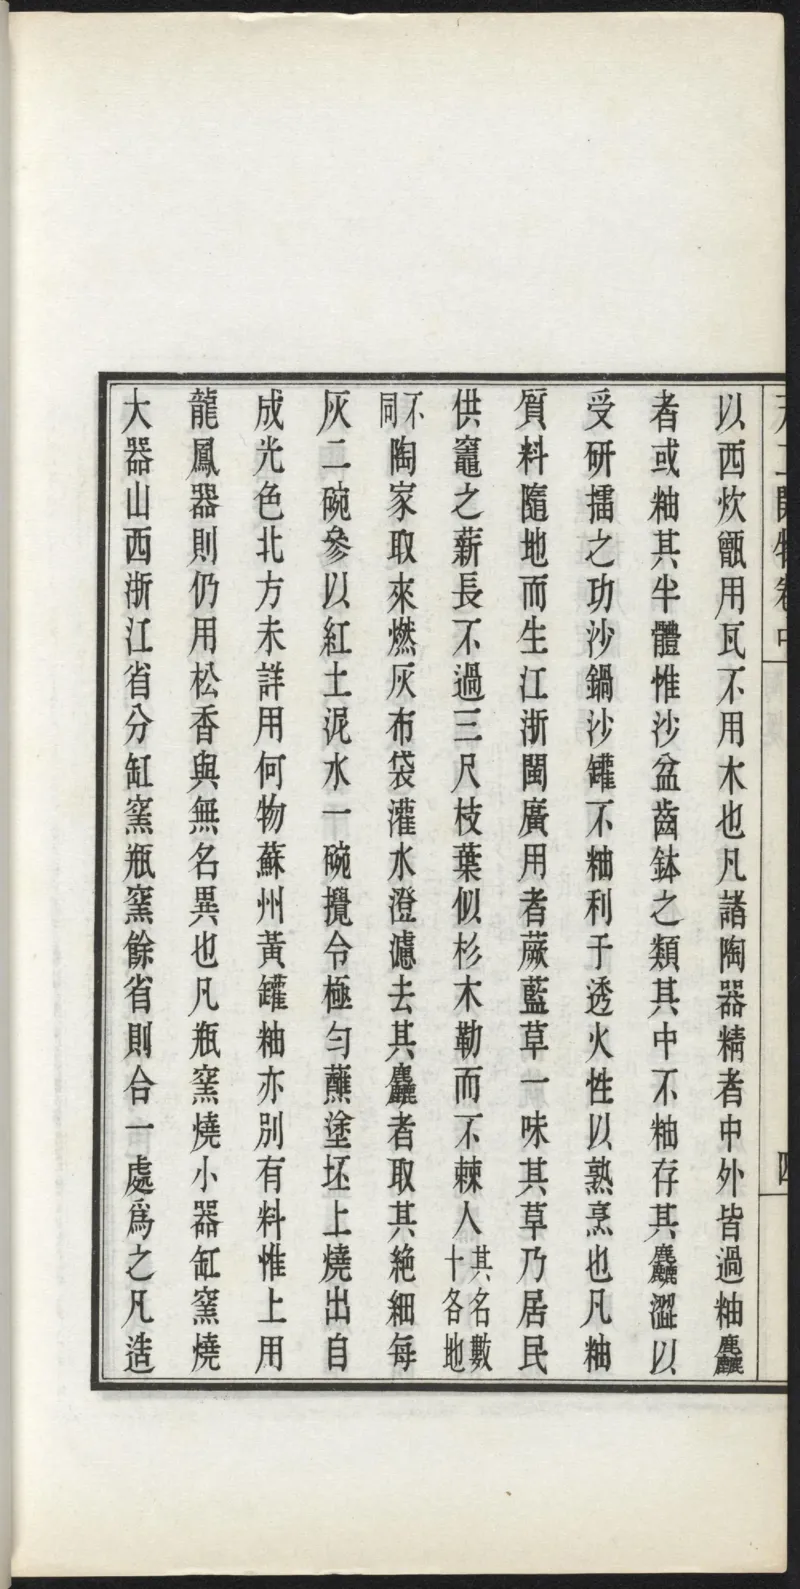 天工開物卷中
四
以西炊甑用瓦不用木也凡諸陶器精者中外皆過釉麤
者或釉其半體惟沙盆齒鉢之類其中不釉存其麤澀以
受研擂之功沙鍋沙罐不釉利于透火性以熟烹也凡釉
質料隨地而生江浙閩廣用者蕨藍草一味其草乃居民
供竈之薪長不過三尺枝葉似杉木勒而不棘人其名數十各地
不同陶家取來燃灰布袋灌水澄濾去其麤者取其絶細每
灰二碗參以紅土泥水一碗攪令極勻蘸塗坯上燒出自
成光色北方未詳用何物蘇州黃罐釉亦別有料惟上用
龍鳳器則仍用松香與無名異也凡瓶窯燒小器缸窯燒
大器山西浙江省分缸窯瓶窯餘省則合一處爲之凡造